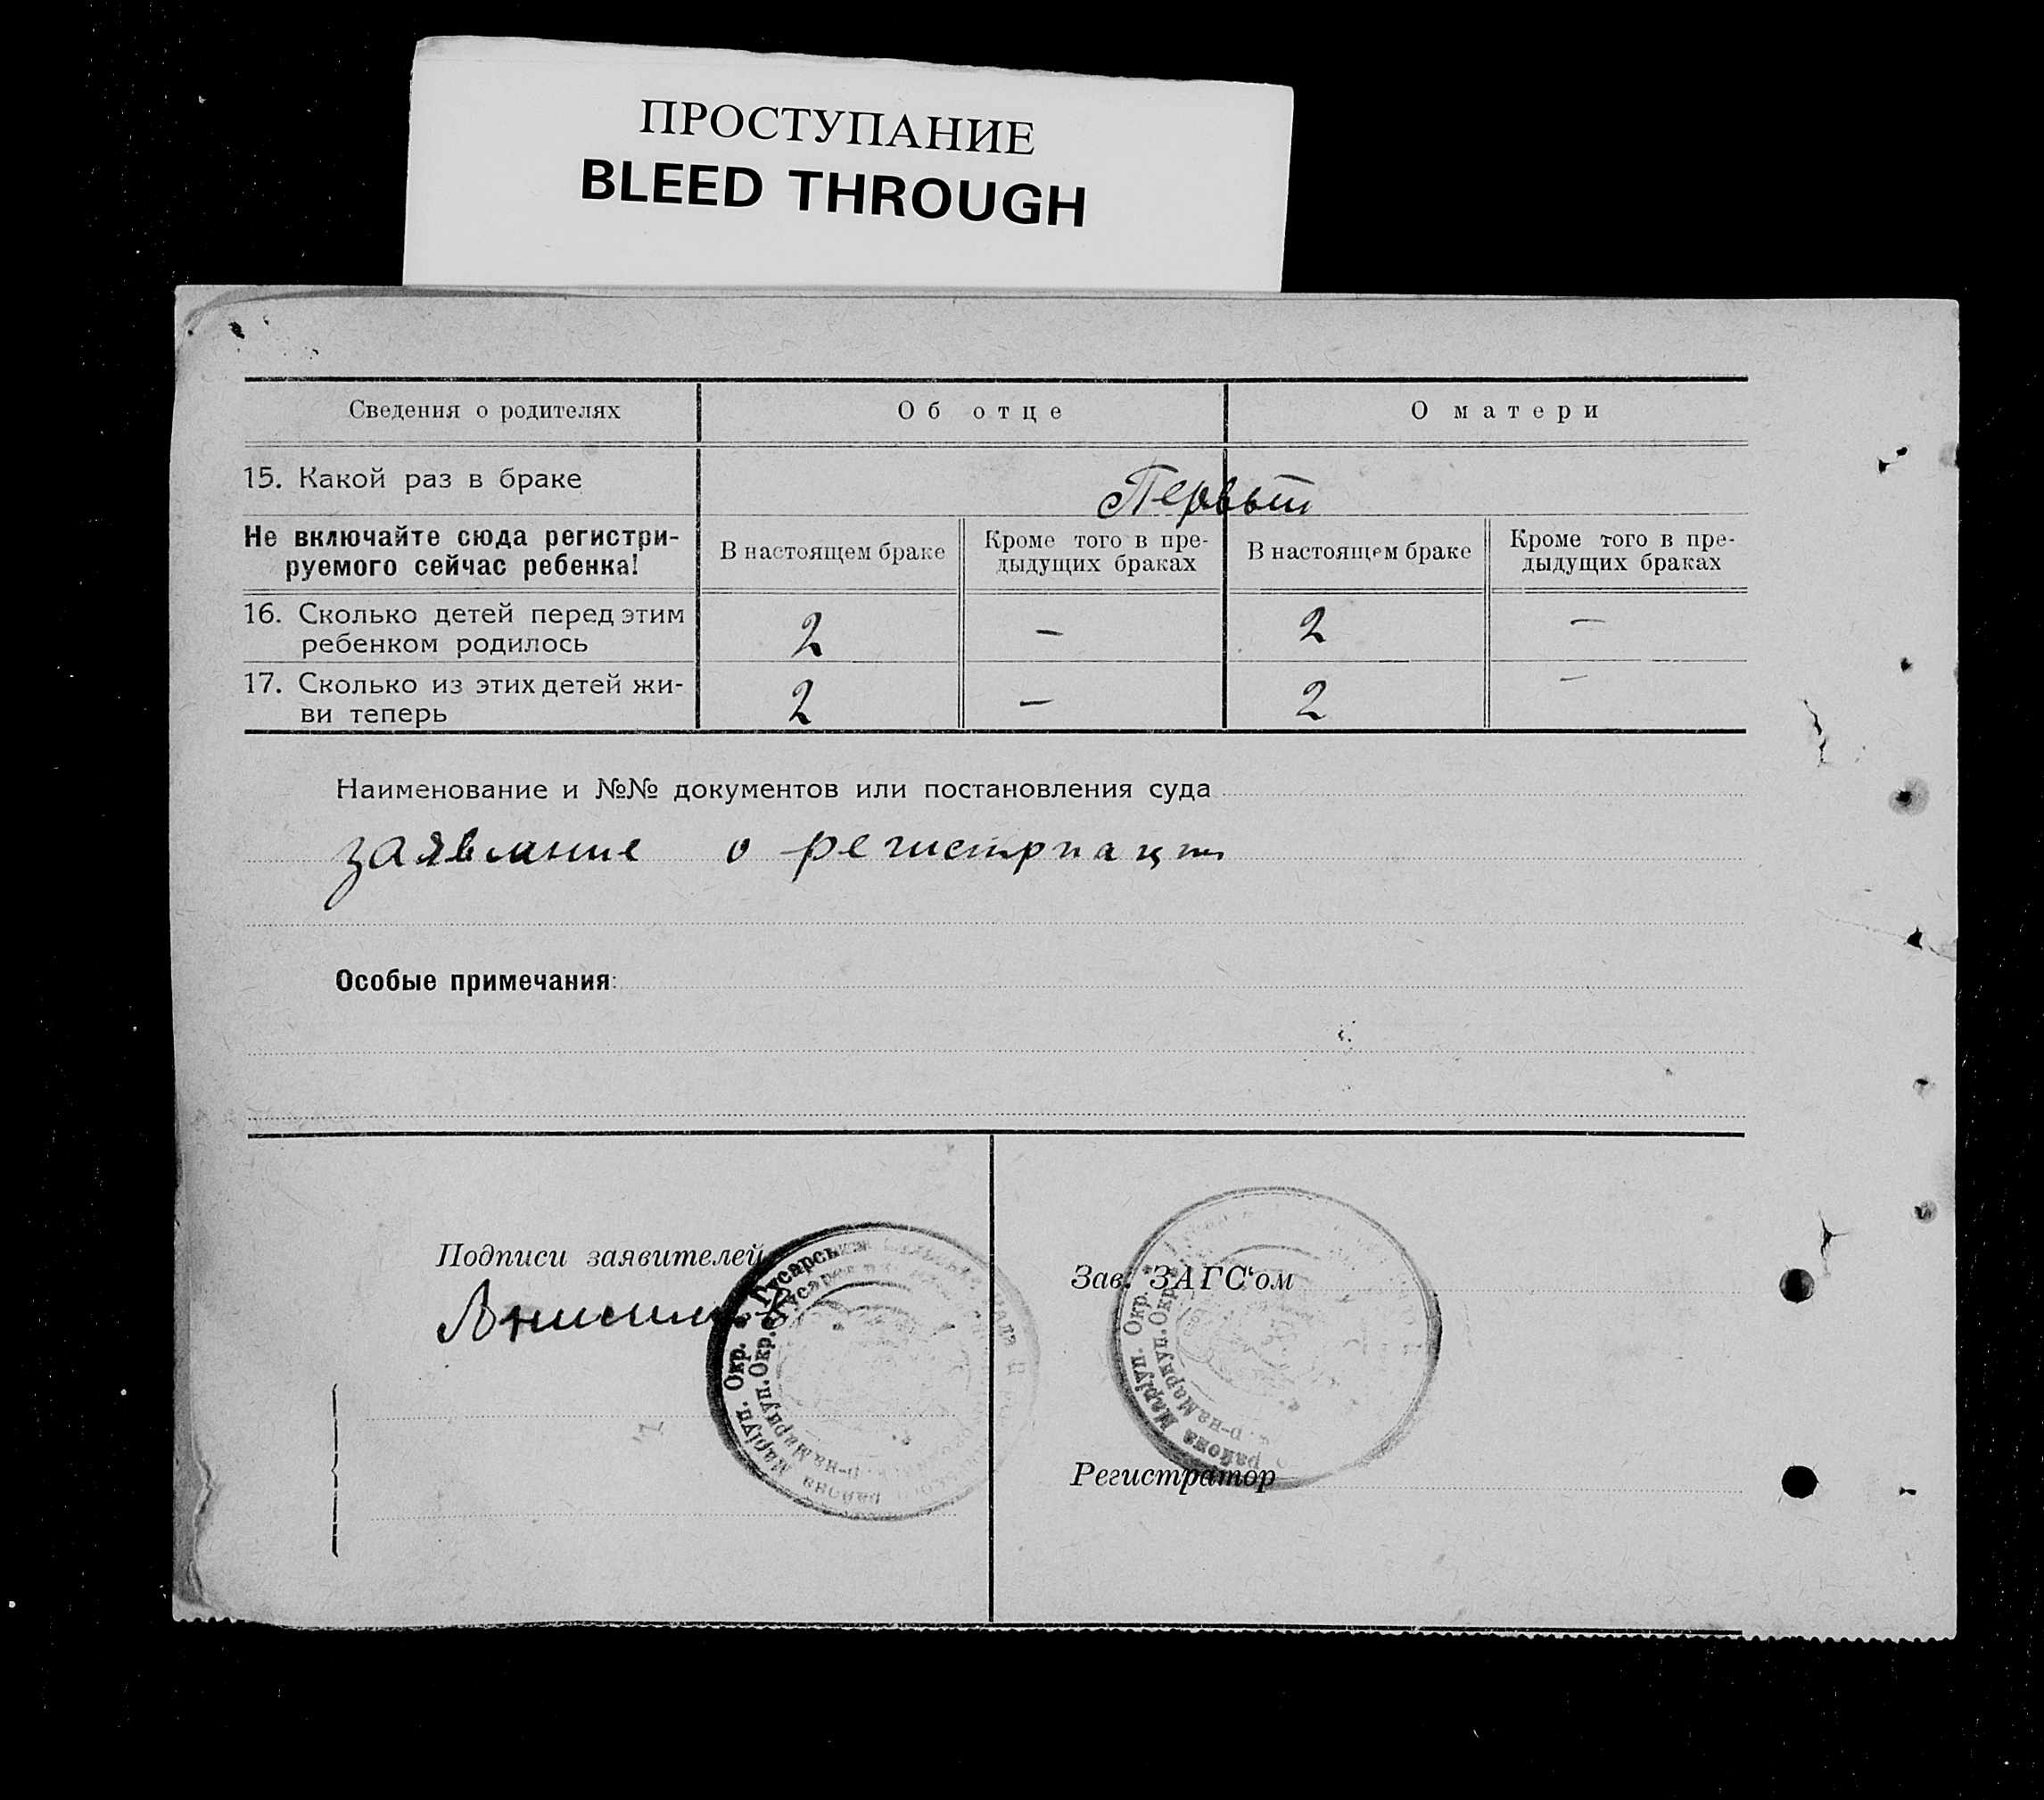 ПРОСТУПАНИЕ
BLEED THROUGH
Сведения о родителях Об отце О матери
15. Какой раз в браке Первый
Не включайте сюда регистри-
руемого сейчас ребенка!
В настоящем браке
Кроме того в пре-
дыдущих браках
В настоящем браке
Кроме того в пре-
дыдущих браках
16. Сколько детей перед этим
ребенком родилось 2 — 2 —
17. Сколько из этих детей жи-
ви теперь 2 — 2 —
Наименование и №№ документов или постановления суда
заявление о регистрации
Особые примечания:
Подписи заявителей
Зав. ЗАГС‘ом
Регистратор
Гусарськ
района Маріуп. Окр.
р-на Мариуп. Окр.
района Маріуп. Окр.
р-на Мариуп. Окр.